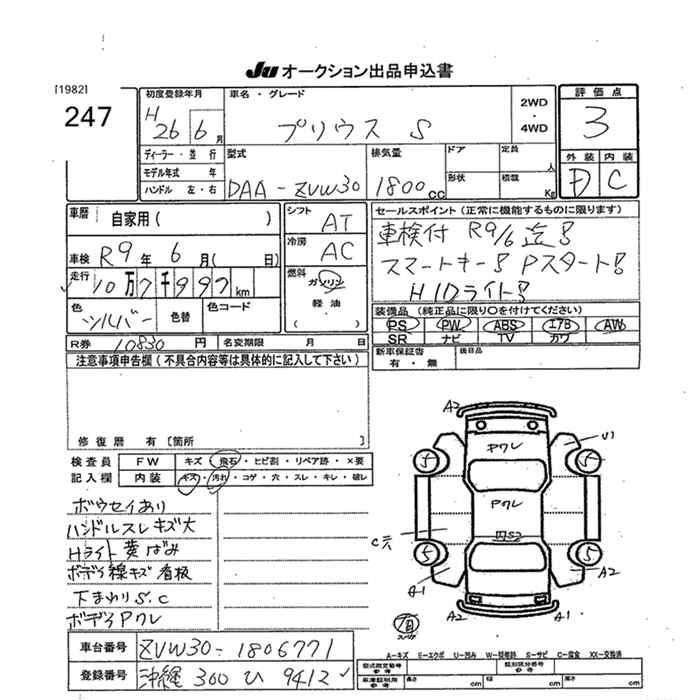 Ju オークション出品申込書
[1982]
247
初度登録年月
H 26 6 月
車名・グレード
プリウス S
2WD
・
4WD
評価点
3
ディーラー・並行
モデル年式 年
ハンドル 左・右
型式
DAA-ZVW30
排気量
1800 CC
ドア
形状
定員 人
積載 Kg
外装 内装
C
車歴
自家用( )
シフト
AT
車検 R9 年 6 月( 日)
冷房
AC
走行
10万7千997 km
燃料
ガソリン
・
軽油
( )
色
シルバー
色替
色コード
セールスポイント(正常に機能するものに限ります)
車検付 R9/6迄!
スマートキー! Pスタート!
HIDライト!
装備品(純正品に限り○を付けてください)
PS PW ABS エアB AW
SR ナビ TV カワ
R券 10830 円
名変期限 月 日
新車保証書
有・無
後日品
注意事項申告欄(不具合内容等は具体的に記入して下さい)
修復歴 有[箇所 ]
検査員
記入欄
FW キズ・飛石・ヒビ割・リペア跡・×要
内装 キズ・汚れ・コゲ・穴・スレ・キレ・破レ
ボウセイあり
ハンドルスレキズ大
Hライト黄ばみ
ボデイ線キズ 看板
下まわりS.C
ボデイPクレ
A2
Pクレ
U1
5 5
Pクレ
5 5
A2
A2 A1
A-キズ E-エクボ U-凹み W-補修跡 S-サビ C-腐食 XX-交換済
車台番号 ZVW30-1806771
登録番号 沖縄 300 ひ 9412
型式指定番号
参考
類別区分番号
参考
車庫証明用
参考
長さ cm 幅 cm 高さ cm